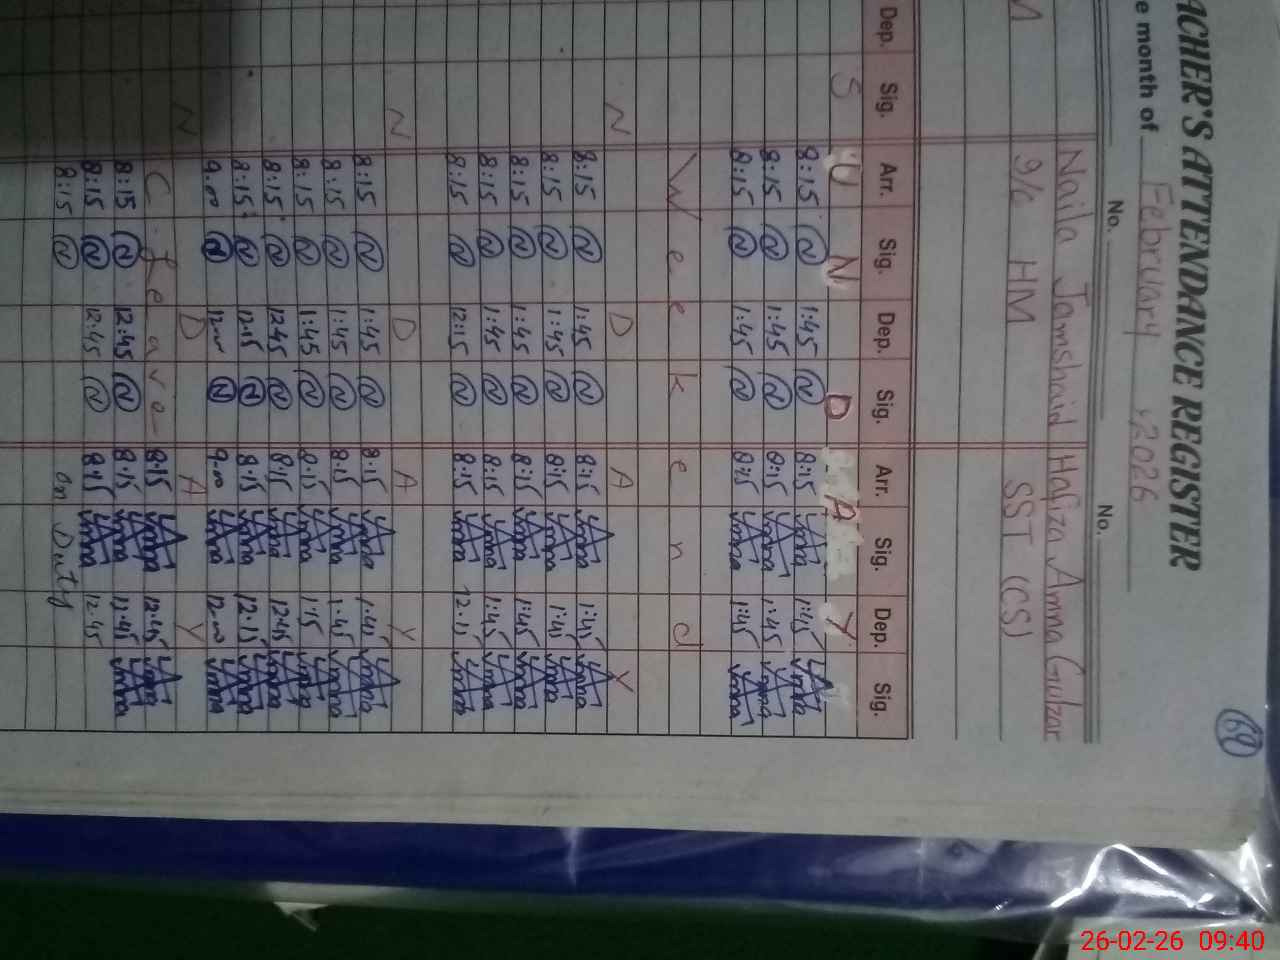 ACHER'S ATTENDANCE REGISTER
69
e month of February, 2026
No. No.
Naila Jamshaid Hafiza Amna Gulzar
M 9/c HM SST (CS)
Dep. Sig. Arr. Sig. Dep. Sig. Arr. Sig. Dep. Sig.
S U N D A Y
8:15 N 1:45 N 8:15 Amna 1:45 Amna
8:15 N 1:45 N 8:15 Amna 1:45 Amna
8:15 N 1:45 N 8:15 Amna 1:45 Amna
W e e k e n d
N D A Y
8:15 N 1:45 N 8:15 Amna 1:45 Amna
8:15 N 1:45 N 8:15 Amna 1:45 Amna
8:15 N 1:45 N 8:15 Amna 1:45 Amna
8:15 N 1:45 N 8:15 Amna 1:45 Amna
8:15 N 12:15 N 8:15 Amna 12:15 Amna
N D A Y
8:15 N 1:45 N 8:15 Amna 1:45 Amna
8:15 N 1:45 N 8:15 Amna 1:45 Amna
8:15 N 1:45 N 8:15 Amna 1:15 Amna
8:15 N 12:45 N 8:15 Amna 12:45 Amna
8:15 N 12:15 N 8:15 Amna 12:15 Amna
9:00 N 12:00 N 9:00 Amna 12:00 Amna
N D A Y
C. Leave- 8:15 Amna 12:45 Amna
8:15 N 12:45 N 8:15 Amna 12:45 Amna
8:15 N 12:45 N 8:15 Amna 12:45
8:15 N On Duty
26-02-26 09:40